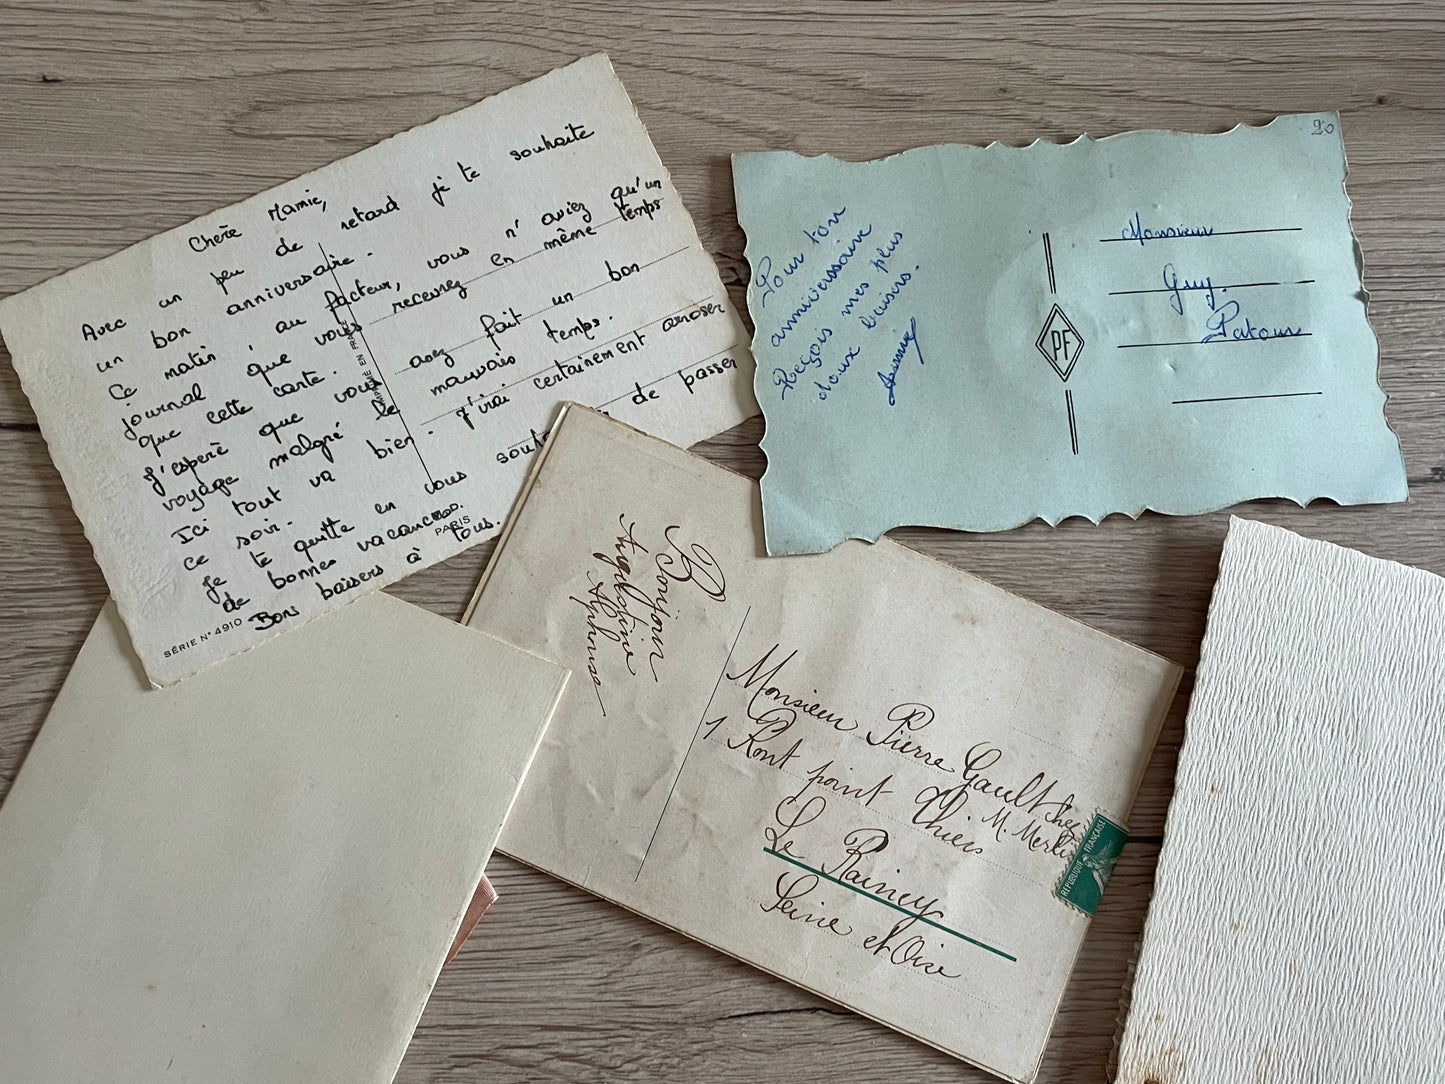 Chère Mamie,
Avec un peu de retard je te souhaite
un bon anniversaire.
Ce matin, au facteur, vous n'aviez qu'un
journal que vous recevrez en même temps
que cette carte.
J'espère que vous avez fait un bon
voyage malgré le mauvais temps.
Ici tout va bien. J'irai certainement arroser
ce soir.
Je te quitte en vous de passer
de bonnes vacances.
Bons baisers à tous.
IMPRIMÉ EN FRANCE
PARIS
SÉRIE N° 4910
20
Pour ton
anniversaire
Reçois mes plus
doux baisers.
PF
Monsieur
Guy.
Patour
Bonjour
Angelotine
Monsieur Pierre Gault chez
M. Merlin
1 Ront point Thiers
Le Rainey
Seine et Oise
RÉPUBLIQUE FRANÇAISE